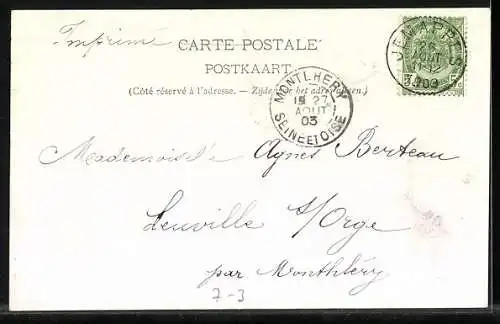 Imprimé
CARTE POSTALE
POSTKAART
(Côté réservé à l'adresse. — Zijde van het adres alleen.)
JEMAPPES
AOUT
1903
MONTLHERY
27
AOUT
03
SEINE ET OISE
Mademoiselle Agnes Berteau
Leuville s/Orge
par Monthléry
7-3